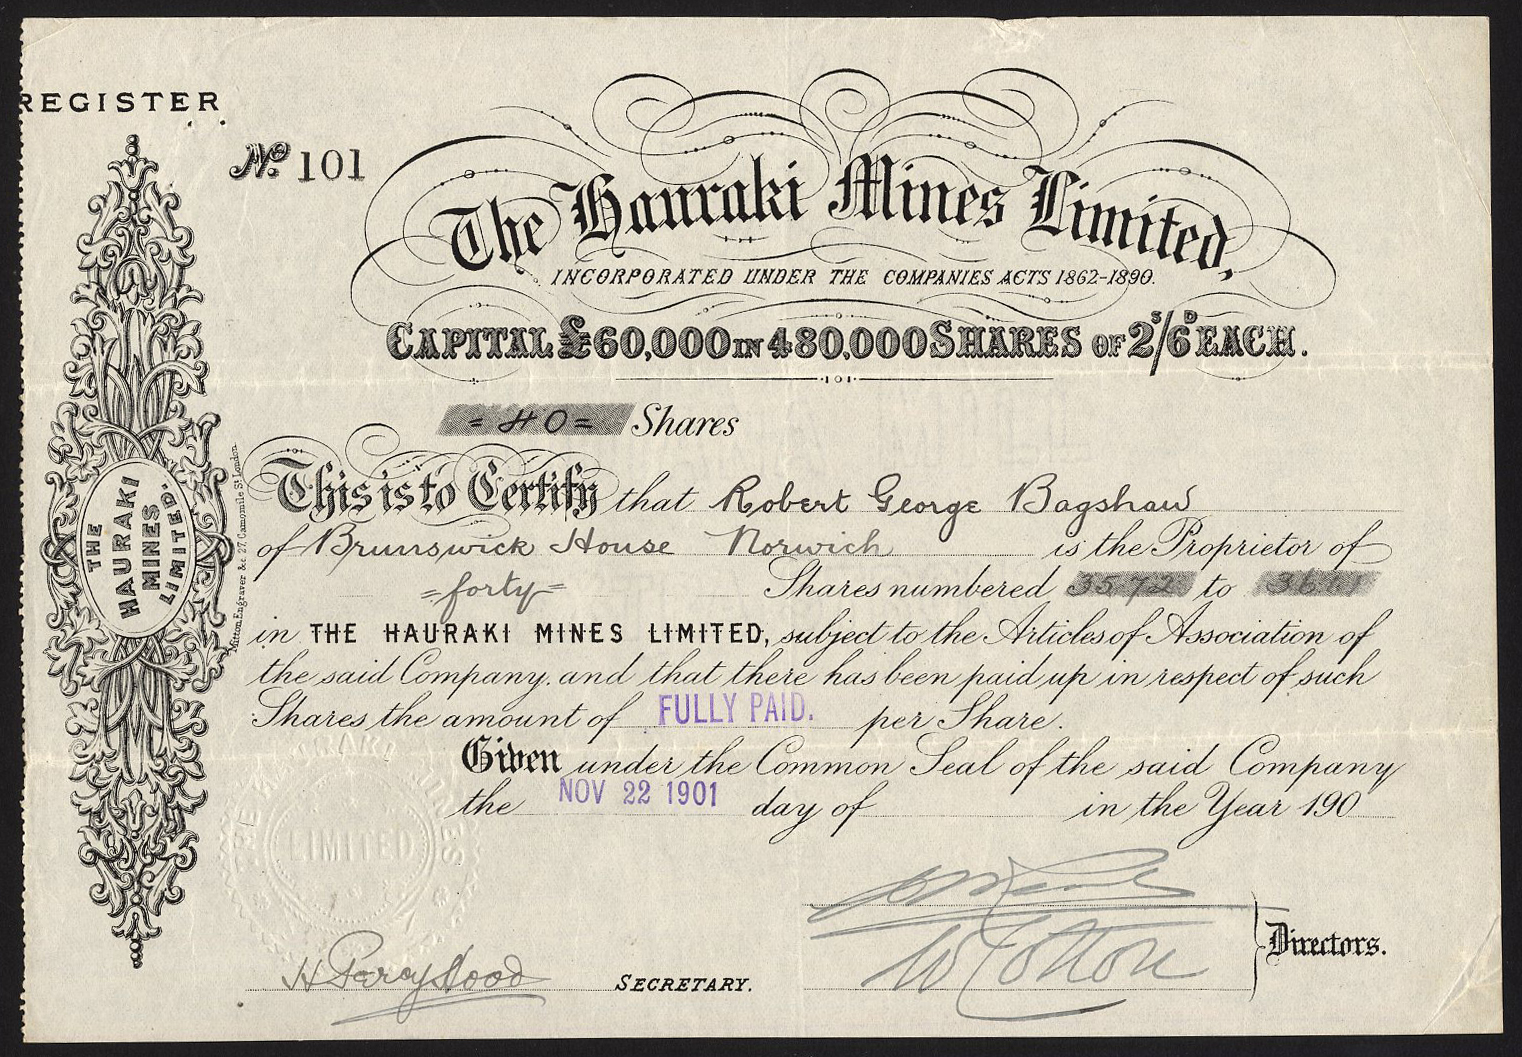 REGISTER
No. 101
The Hauraki Mines Limited,
INCORPORATED UNDER THE COMPANIES ACTS 1862-1890.
CAPITAL £60,000 IN 480,000 SHARES OF 2s/6D EACH.
= 40 = Shares
This is to Certify that Robert George Bagshaw
of Brunswick House Norwich is the Proprietor of
=forty= Shares numbered 3572 to 3611
in THE HAURAKI MINES LIMITED, subject to the Articles of Association of
the said Company, and that there has been paid up in respect of such
Shares the amount of FULLY PAID. per Share.
Given under the Common Seal of the said Company
the NOV 22 1901 day of in the Year 190
Directors.
W Cotton
H Percy Hood SECRETARY.
THE
HAURAKI
MINES
LIMITED.
Mitton, Engraver &c. 27, Camomile St. London.
LIMITED